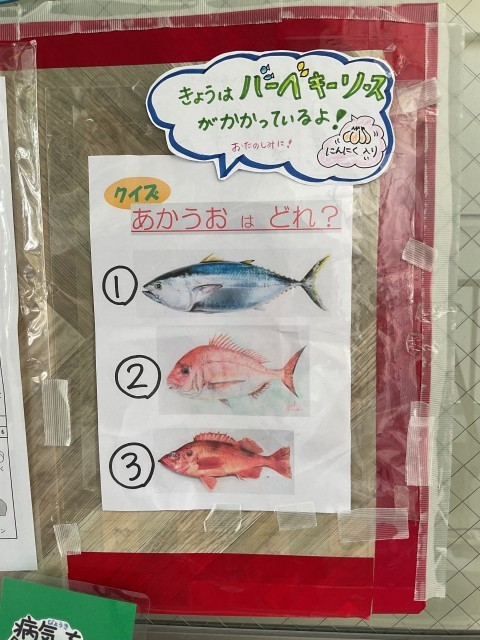 きょうは バーベキーソース
がかかっているよ！
おたのしみに！
にんにく入り
クイズ
あかうお は どれ？
①
②
③
びょうき
病気